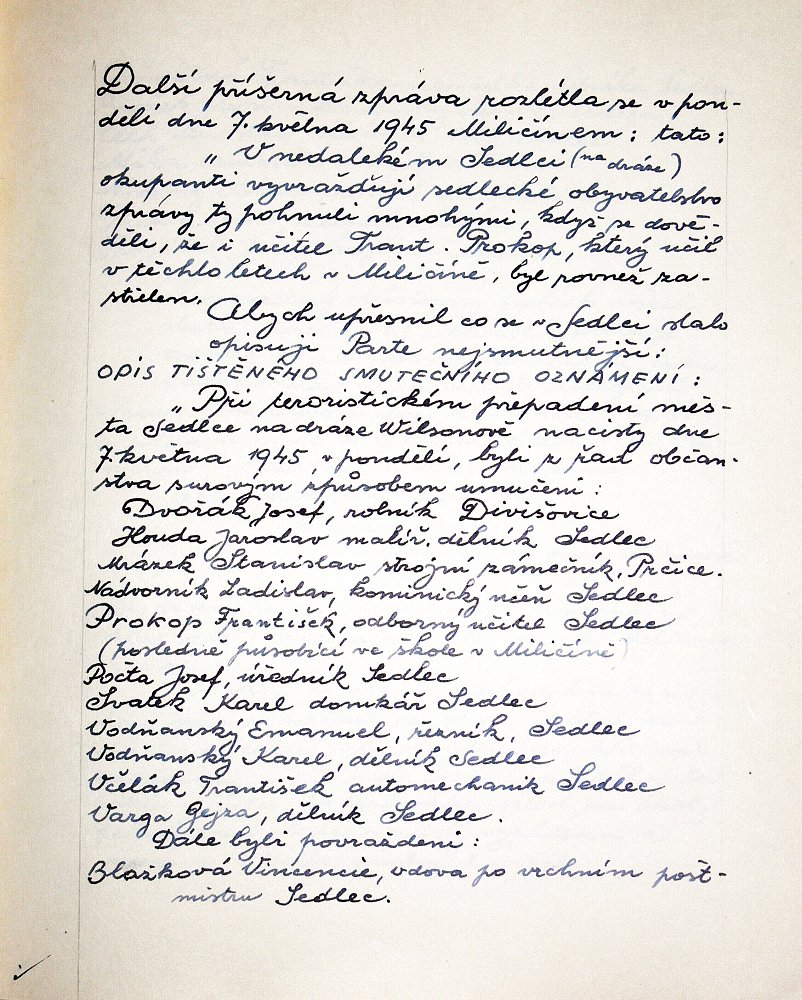 Další příšerná zpráva rozlétla se v pon-
dělí dne 7. května 1945 Miličínem: tato:
„ V nedalekém Sedlci (na dráze)
okupanti vyvražďují sedlecké obyvatelstvo
zprávy ty pohnuli mnohými, když se dově-
děli, že i učitel Frant. Prokop, který učil
v těchto letech v Miličíně, byl rovněž za-
střelen.
Abych upřesnil co se v Sedlci stalo
opisuji Parte nejsmutnější:
OPIS TIŠTĚNÉHO SMUTEČNÍHO OZNÁMENÍ:
„ Při teroristickém přepadení měs-
ta Sedlce na dráze Wilsonově nacisty dne
7. května 1945, v pondělí, byli z řad občan-
stva surovým způsobem umučeni:
Dvořák Josef, rolník Divišovice
Houda Jaroslav malíř. dělník Sedlec
Mrázek Stanislav strojní zámečník, Prčice.
Nádvorník Ladislav, kominický učeň Sedlec
Prokop František, odborný učitel Sedlec
(posledně působící ve škole v Miličíně)
Počta Josef, úředník Sedlec
Svatek Karel domkář Sedlec
Vodňanský Emanuel, řezník, Sedlec
Vodňanský Karel, dělník Sedlec
Včelák František automechanik Sedlec
Varga Gejza, dělník Sedlec.
Dále byli povražděni:
Blažková Vincencie, vdova po vrchním pošt-
mistru Sedlec.